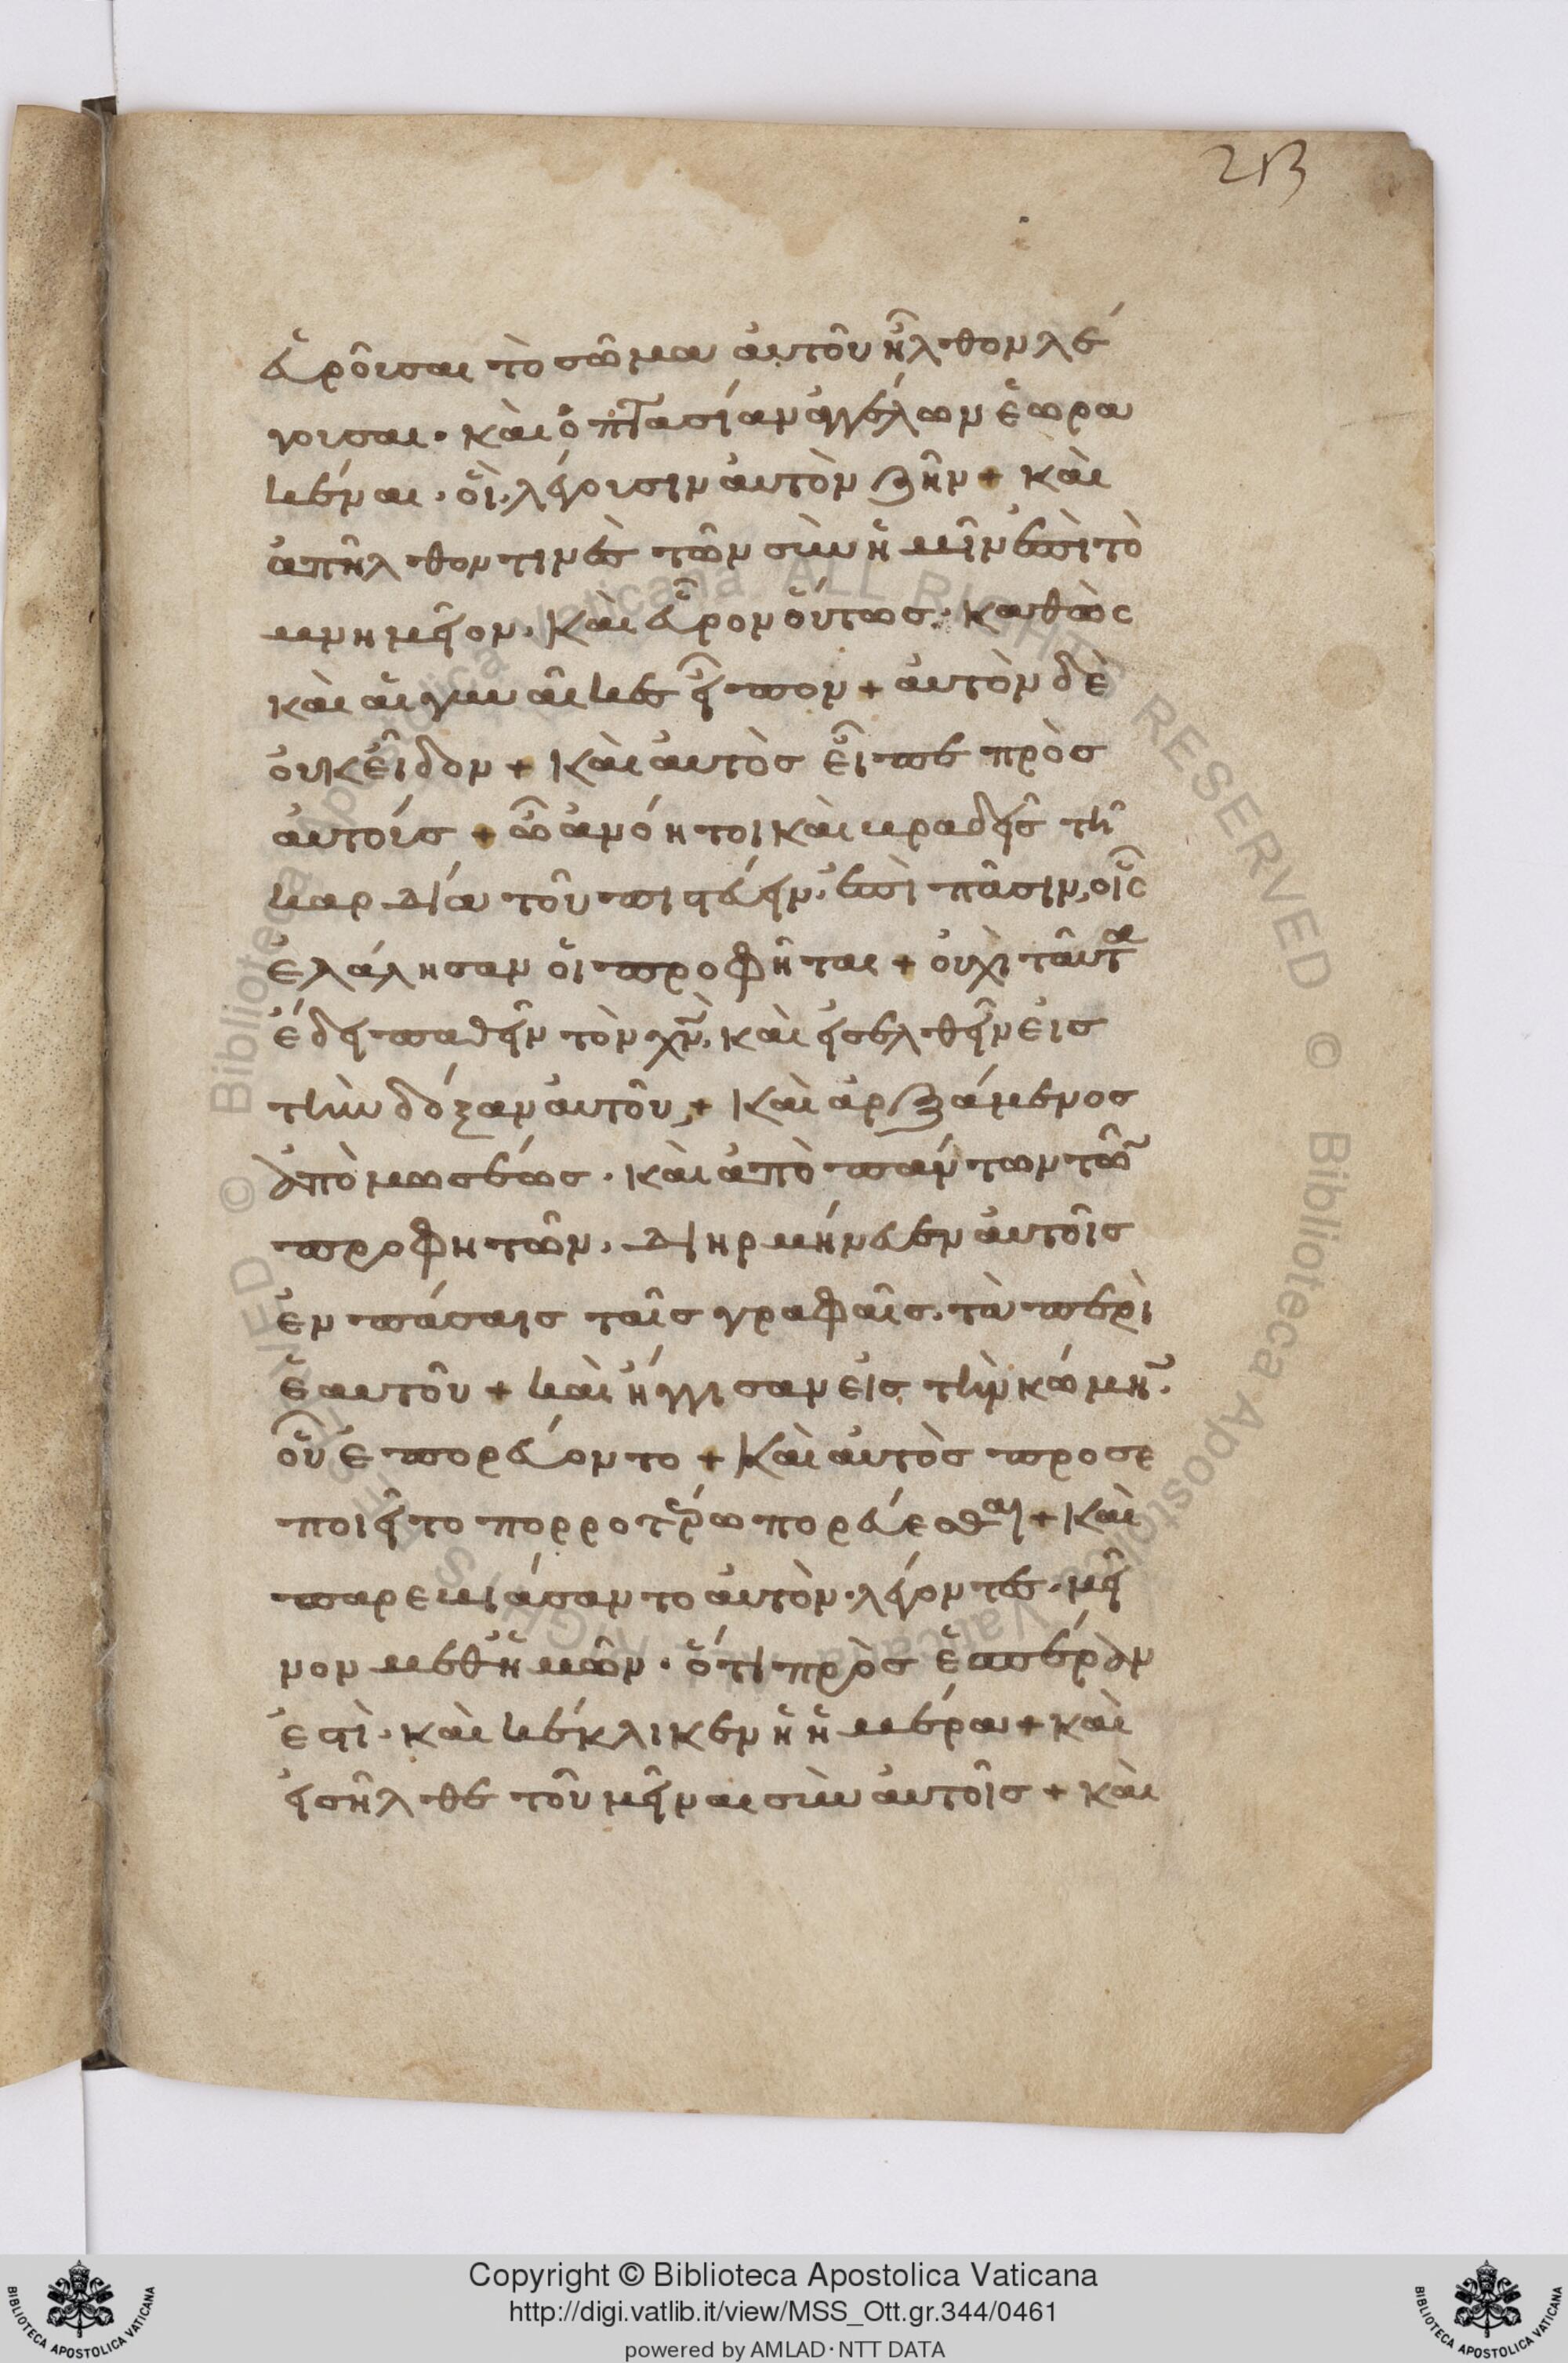 213
εὑροῦσαι τὸ σῶμα αὐτοῦ ἦλθον λέ
γουσαι· καὶ ὀπτασίαν ἀγγέλων ἑωρα
κέναι· οἳ λέγουσιν αὐτὸν ζῆν + καὶ
ἀπῆλθον τινὲς τῶν σὺν ἡμῖν ἐπὶ τὸ
μνημεῖον· καὶ εὗρον οὕτως· καθὼς
καὶ αἱ γυναῖκες εἶπον + αὐτὸν δὲ
οὐκ εἶδον + καὶ αὐτὸς εἶπε πρὸς
αὐτούς + ὦ ἀνόητοι καὶ βραδεῖς τῆ
καρδία τοῦ πιστεύειν· ἐπὶ πᾶσιν, οἷς
ἐλάλησαν οἱ προφῆται + οὐχὶ ταῦτα
ἔδει παθεῖν τὸν χν, καὶ εἰσελθεῖν εἰς
τὴν δόξαν αὐτοῦ + καὶ ἀρξάμενος
ἀπὸ μωσέως· καὶ ἀπὸ πάντων τῶν
προφητῶν· διηρμήνευεν αὐτοῖς
ἐν πάσαις ταῖς γραφαῖς· τὰ περὶ
ἑαυτοῦ + καὶ ἤγγισαν εἰς τὴν κώμην·
οὗ ἐπορεύοντο + καὶ αὐτὸς προσε
ποιεῖτο πορροτέρω πορεύεσθαι + καὶ
παρεβιάσαντο αὐτὸν· λέγοντες· μεῖ
νον μεθ ἡμῶν· ὅτι πρὸς ἑσπέραν
ἐστὶ· καὶ κέκλικεν ἡ ἡμέρα + καὶ
εἰσῆλθε τοῦ μεῖναι σὺν αὐτοῖς + καὶ
Copyright © Biblioteca Apostolica Vaticana
http://digi.vatlib.it/view/MSS_Ott.gr.344/0461
powered by AMLAD·NTT DATA
BIBLIOTECA APOSTOLICA VATICANA
BIBLIOTECA APOSTOLICA VATICANA